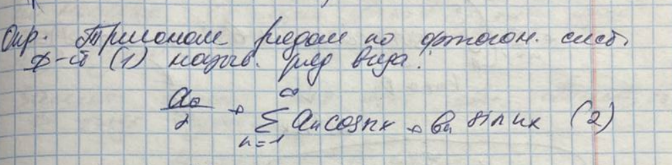 Опр. Тригоном рядом по ортогон. сист.
ф-й (1) назыв. ряд вида:
a₀/2 + ∞∑n=1 aₙ cos nx + bₙ sin nx (2)